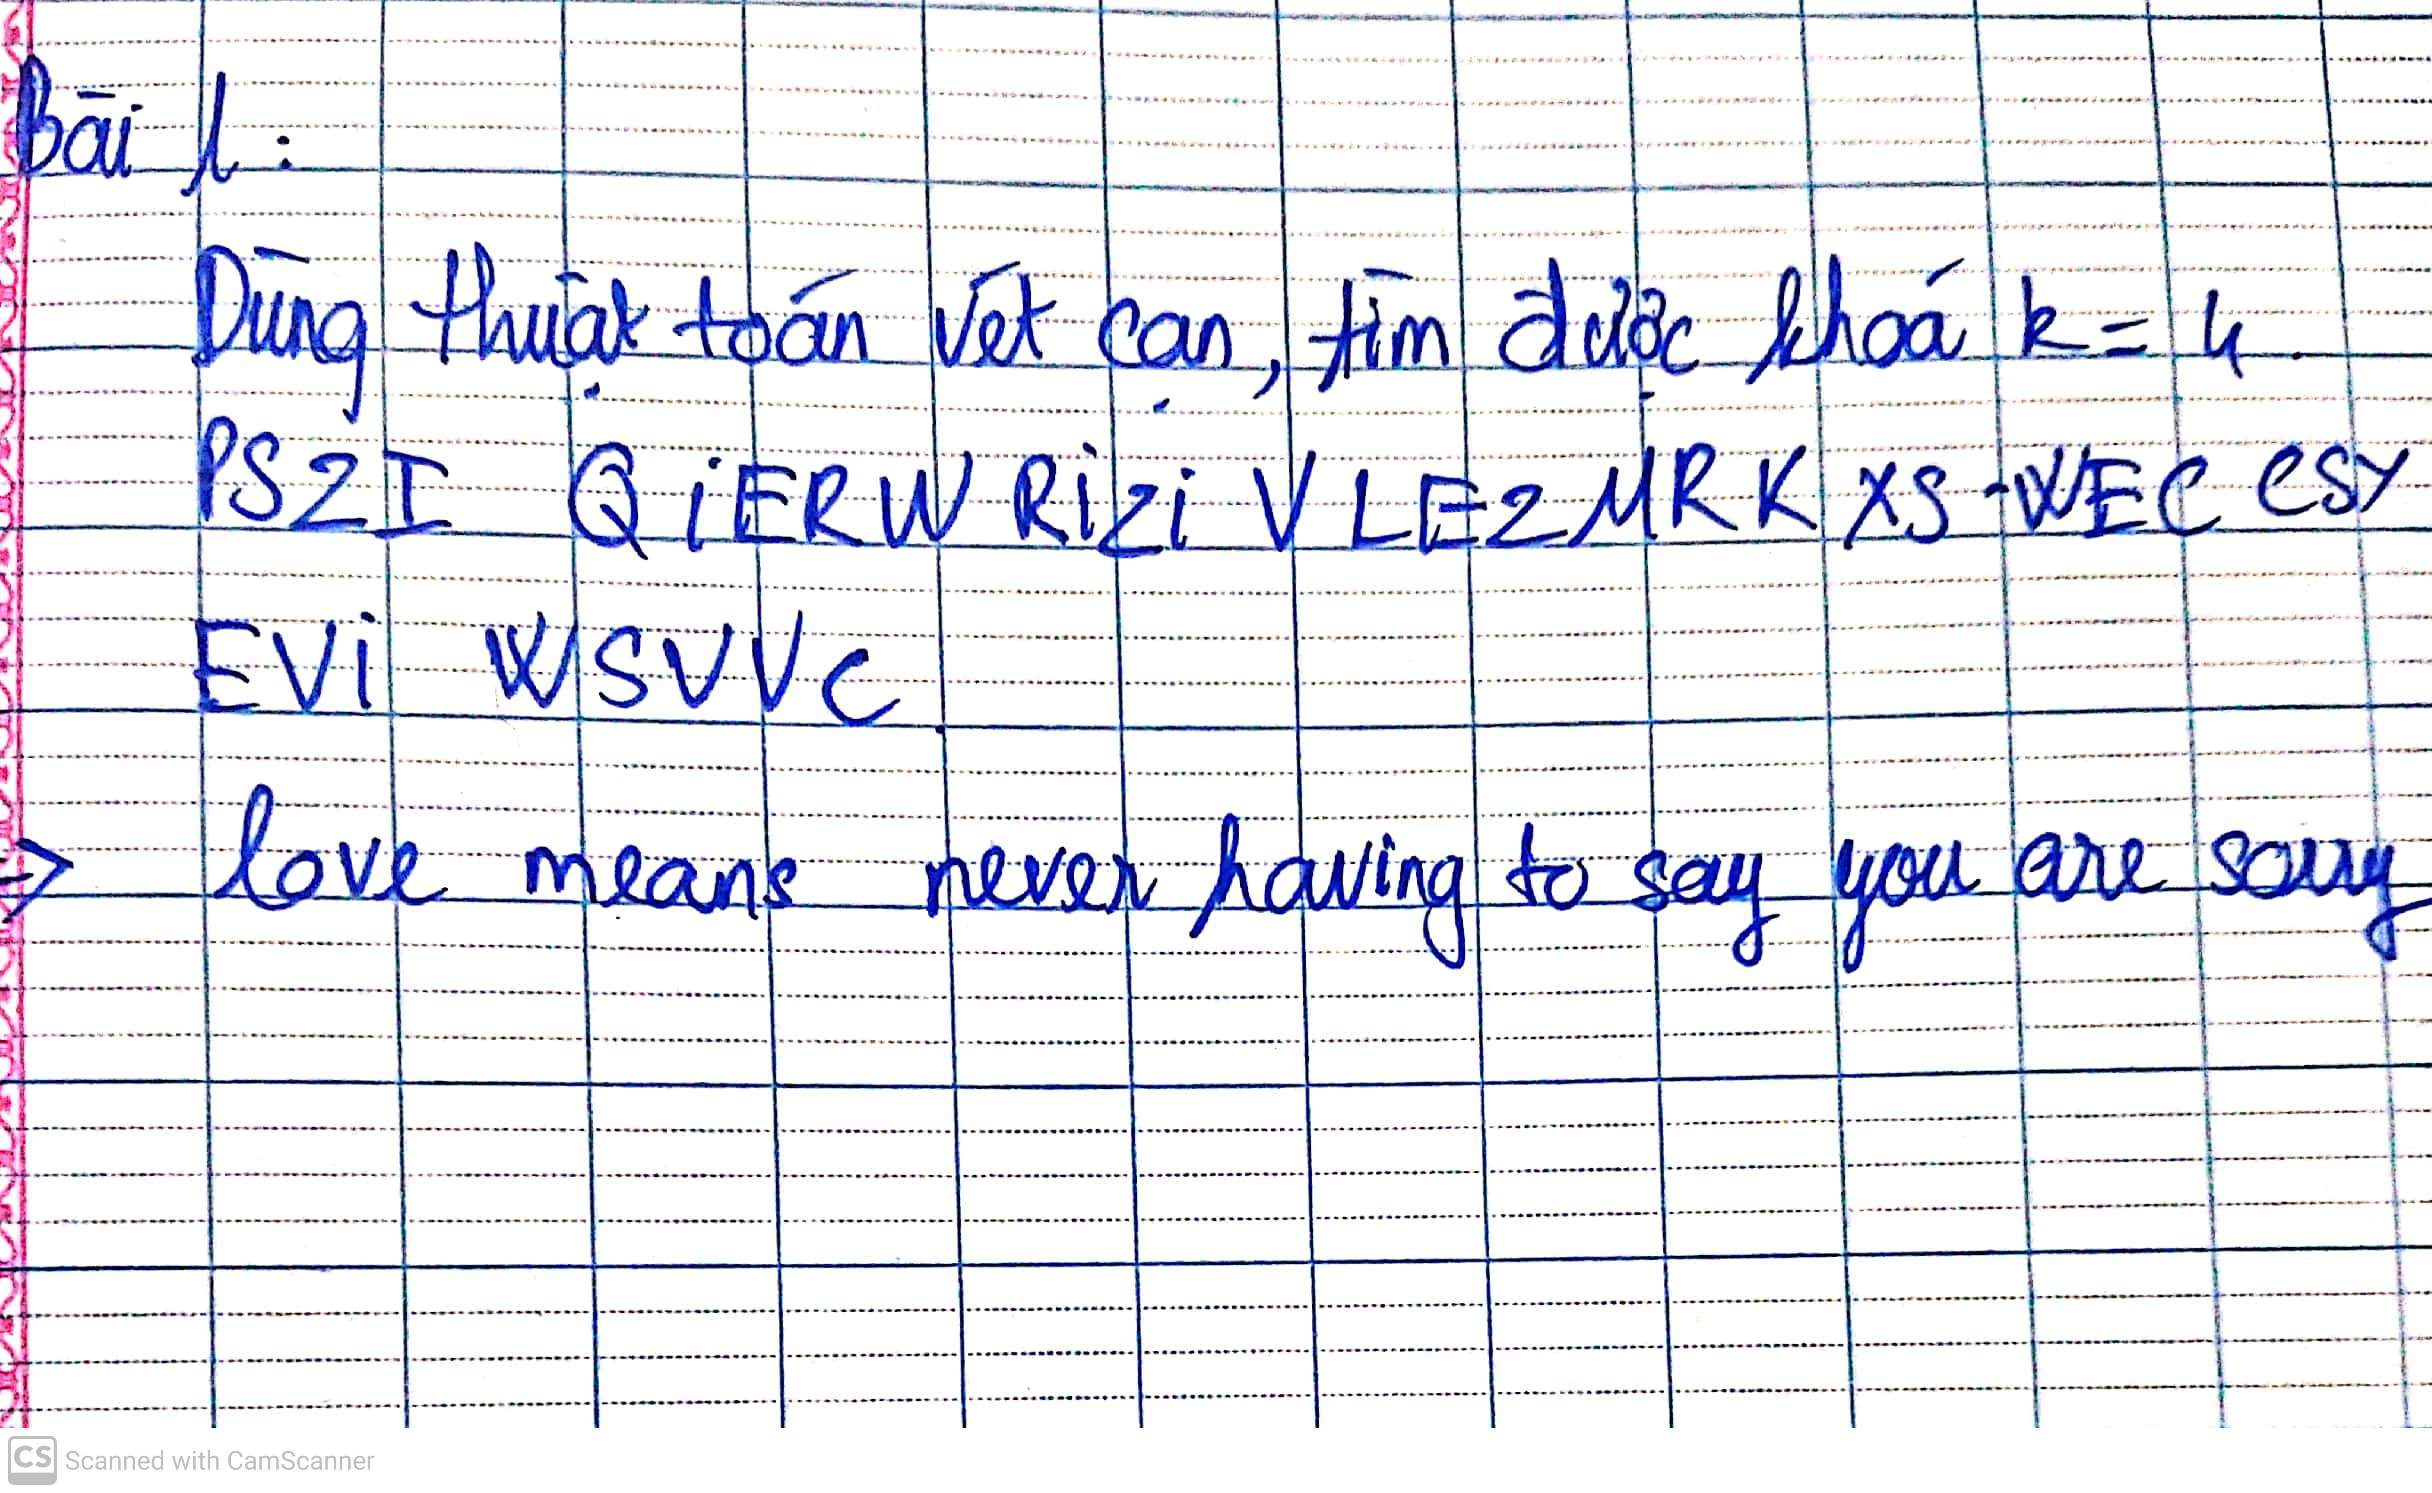 Bài 1:
Dùng thuật toán vét cạn, tìm được khoá k = 4.
PSZI QiERW RiZi V LEZMRK XS WEC CSY
EVi WSVVC.
=> love means never having to say you are sorry
CS Scanned with CamScanner